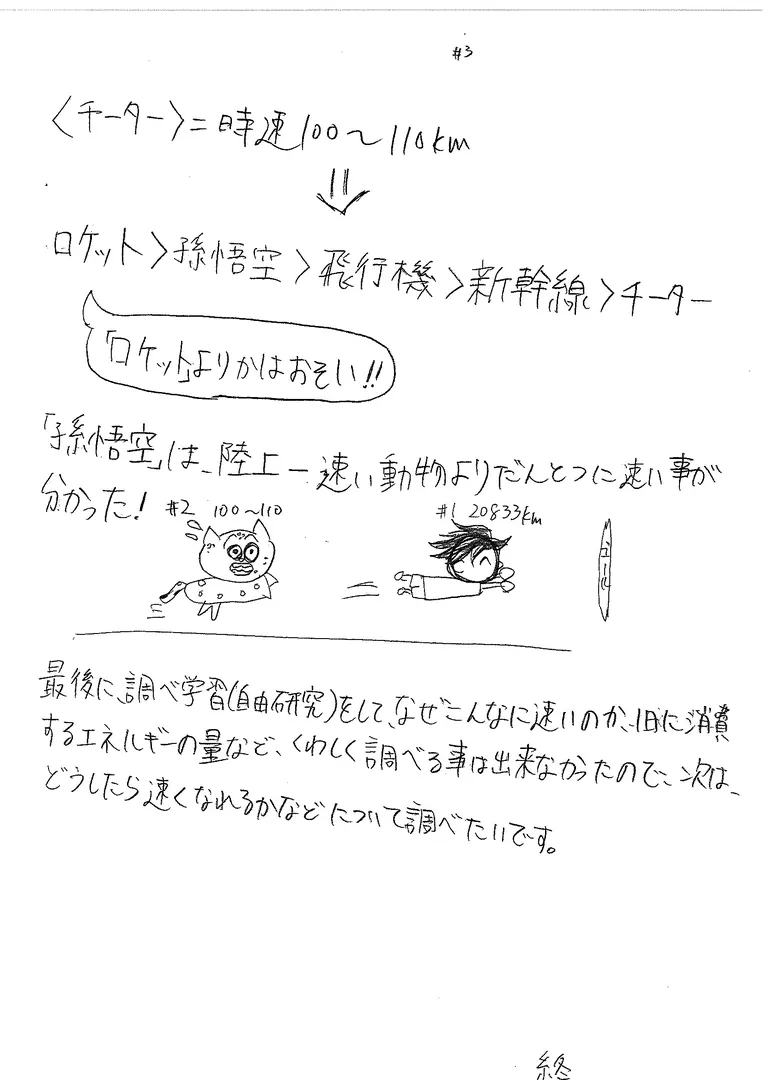 #3
〈チーター〉=時速100～110km
⇓
ロケット>孫悟空>飛行機>新幹線>チーター
「ロケット」よりかはおそい!!
「孫悟空」は、陸上一速い動物よりだんとつに速い事が
分かった!
#2 100～110
#1 20833km
ゴール
最後に、調べ学習(自由研究)をして、なぜこんなに速いのか、1日に消費
するエネルギーの量など、くわしく調べる事は出来なかったので、次は、
どうしたら速くなれるかなどについて調べたいです。
終